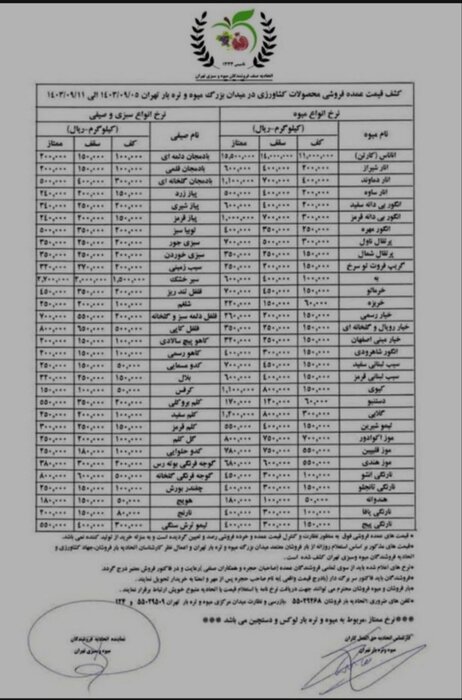 تاسیس ۱۳۳۴
اتحادیه صنف فروشندگان میوه و سبزی تهران
کشف قیمت عمده فروشی محصولات کشاورزی در میدان بزرگ میوه و تره بار تهران ۱۴۰۳/۰۹/۰۵ الی ۱۴۰۳/۰۹/۱۱
نرخ انواع میوه نرخ انواع سبزی و صیفی
نام میوه (کیلوگرم-ریال) نام صیفی (کیلوگرم-ریال)
کف سقف ممتاز کف سقف ممتاز
آناناس (کارتن) ۱۱,۰۰۰,۰۰۰ ۱۴,۰۰۰,۰۰۰ ۱۵,۵۰۰,۰۰۰ بادمجان دلمه ای ۱۰۰,۰۰۰ ۱۵۰,۰۰۰ ۲۰۰,۰۰۰
انار شیراز ۲۰۰,۰۰۰ ۴۰۰,۰۰۰ ۶۰۰,۰۰۰ بادمجان قلمی ۱۰۰,۰۰۰ ۱۵۰,۰۰۰ ۲۰۰,۰۰۰
انار دماوند ۴۰۰,۰۰۰ ۷۰۰,۰۰۰ ۱,۱۰۰,۰۰۰ بادمجان گلخانه ای
انار ساوه ۲۰۰,۰۰۰ ۴۰۰,۰۰۰ ۵۰۰,۰۰۰ پیاز زرد ۱۵۰,۰۰۰ ۲۴۰,۰۰۰
انگور بی دانه سفید ۲۰۰,۰۰۰ ۴۰۰,۰۰۰ ۶۰۰,۰۰۰ پیاز شیری ۲۰۰,۰۰۰ ۲۴۰,۰۰۰
انگور بی دانه قرمز ۳۰۰,۰۰۰ ۷۰۰,۰۰۰ ۱,۰۰۰,۰۰۰ پیاز قرمز ۱۵۰,۰۰۰ ۲۰۰,۰۰۰ ۲۴۰,۰۰۰
انگور مهره ۲۵۰,۰۰۰ ۳۰۰,۰۰۰ ۴۰۰,۰۰۰ لوبیا سبز ۲۰۰,۰۰۰ ۳۵۰,۰۰۰ ۵۰۰,۰۰۰
پرتقال ناول ۳۰۰,۰۰۰ ۵۰۰,۰۰۰ ۷۰۰,۰۰۰ سبزی جور ۲۰۰,۰۰۰ ۲۵۰,۰۰۰ ۳۵۰,۰۰۰
پرتقال شمال ۱۵۰,۰۰۰ ۲۵۰,۰۰۰ ۳۵۰,۰۰۰ سبزی خوردن ۲۰۰,۰۰۰ ۲۵۰,۰۰۰ ۳۵۰,۰۰۰
گریپ فروت تو سرخ ۱۵۰,۰۰۰ ۲۰۰,۰۰۰ ۲۵۰,۰۰۰ سیب زمینی ۲۰۰,۰۰۰ ۲۷۰,۰۰۰ ۳۲۰,۰۰۰
به ۱۰۰,۰۰۰ ۴۰۰,۰۰۰ ۶۰۰,۰۰۰ سیر خشک ۱,۵۰۰,۰۰۰ ۲,۰۰۰,۰۰۰ ۲,۷۰۰,۰۰۰
خرمالو ۱۵۰,۰۰۰ ۴۵۰,۰۰۰ ۷۰۰,۰۰۰ فلفل تند ریز ۳۵۰,۰۰۰ ۴۵۰,۰۰۰
خربزه ۶۰,۰۰۰ ۱۵۰,۰۰۰ ۲۲۰,۰۰۰ شلغم ۱۰۰,۰۰۰ ۲۰۰,۰۰۰ ۲۵۰,۰۰۰
خیار رسمی ۱۵۰,۰۰۰ ۲۰۰,۰۰۰ ۲۶۰,۰۰۰ فلفل دلمه سبز و گلخانه ۲۰۰,۰۰۰ ۵۵۰,۰۰۰ ۷۰۰,۰۰۰
خیار رویال و گلخانه ای ۱۵۰,۰۰۰ ۲۵۰,۰۰۰ ۳۵۰,۰۰۰ فلفل کاپی ۵۰۰,۰۰۰ ۶۵۰,۰۰۰ ۸۰۰,۰۰۰
خیار مینی اصفهان کاهو پیچ سالادی ۱۰۰,۰۰۰ ۲۰۰,۰۰۰
انگور شاهرودی ۱۵۰,۰۰۰ ۳۰۰,۰۰۰ ۴۰۰,۰۰۰ کاهو رسمی ۱۰۰,۰۰۰ ۱۵۰,۰۰۰ ۲۰۰,۰۰۰
سیب لبنانی سفید ۱۵۰,۰۰۰ ۴۵۰,۰۰۰ ۷۰۰,۰۰۰ کدو مسمایی ۵۰,۰۰۰ ۱۵۰,۰۰۰ ۲۵۰,۰۰۰
سیب لبنانی قرمز ۲۰۰,۰۰۰ ۴۰۰,۰۰۰ ۶۰۰,۰۰۰ بلال
کیوی ۱۵۰,۰۰۰ ۸۰۰,۰۰۰ ۱,۱۰۰,۰۰۰ کرفس ۵۰,۰۰۰ ۱۰۰,۰۰۰ ۱۵۰,۰۰۰
دستنبو ۶۰,۰۰۰ ۱۲۰,۰۰۰ ۱۷۰,۰۰۰ کلم بروکلی ۲۰۰,۰۰۰ ۳۵۰,۰۰۰ ۵۵۰,۰۰۰
گلابی ۳۰۰,۰۰۰ ۸۰۰,۰۰۰ ۱,۲۰۰,۰۰۰ کلم سفید ۲۰۰,۰۰۰ ۲۵۰,۰۰۰
لیمو شیرین ۱۵۰,۰۰۰ ۴۰۰,۰۰۰ ۵۵۰,۰۰۰ کلم قرمز ۱۵۰,۰۰۰ ۲۵۰,۰۰۰ ۳۰۰,۰۰۰
موز اکوادور ۷۰۰,۰۰۰ ۷۵۰,۰۰۰ ۸۰۰,۰۰۰ گل کلم ۱۰۰,۰۰۰ ۲۰۰,۰۰۰ ۲۵۰,۰۰۰
موز فلیپین ۵۵۰,۰۰۰ ۷۵۰,۰۰۰ ۷۸۰,۰۰۰ کدو حلوایی ۱۰۰,۰۰۰ ۱۸۰,۰۰۰ ۲۵۰,۰۰۰
موز هندی ۵۵۰,۰۰۰ ۶۰۰,۰۰۰ ۶۸۰,۰۰۰ گوجه فرنگی بوته رس ۲۰۰,۰۰۰ ۳۰۰,۰۰۰ ۳۸۰,۰۰۰
نارنگی انشو ۱۵۰,۰۰۰ ۴۰۰,۰۰۰ ۵۶۰,۰۰۰ گوجه فرنگی گلخانه ۴۰۰,۰۰۰ ۶۰۰,۰۰۰ ۸۰۰,۰۰۰
نارنگی تانجلو ۱۵۰,۰۰۰ ۳۰۰,۰۰۰ ۴۰۰,۰۰۰ چغندر بورش ۱۰۰,۰۰۰ ۱۵۰,۰۰۰ ۲۵۰,۰۰۰
هندوانه ۵۰,۰۰۰ ۱۰۰,۰۰۰ ۱۸۰,۰۰۰ هویج ۵۰,۰۰۰ ۱۵۰,۰۰۰ ۱۸۰,۰۰۰
نارنگی یافا ۱۰۰,۰۰۰ ۳۰۰,۰۰۰ ۴۰۰,۰۰۰ نارنج ۸۰,۰۰۰ ۱۵۰,۰۰۰ ۲۰۰,۰۰۰
نارنگی پیج ۱۵۰,۰۰۰ ۳۰۰,۰۰۰ ۴۰۰,۰۰۰ لیمو ترش سنگی ۳۰۰,۰۰۰ ۴۰۰,۰۰۰ ۵۵۰,۰۰۰
* قیمت های عمده فروشی فوق به منظور نظارت و کنترل قیمت عمده و خرده فروشی رصد و تعیین گردیده است و به منزله خرید از تولید کننده نمی باشد.
*قیمت های مذکور بر اساس استعلام روزانه از بار فروشان معتمد میدان بزرگ میوه و تره بار تهران و اعمال نظر کارشناسان اتحادیه بار فروشان، جهاد کشاورزی و
اتحادیه فروشندگان میوه وسبزی تهران کشف شده است.
*نرخ های اعلام شده باید از سوی تمامی فروشندگان عمده (صاحبان حجره و همکاران صنفی) رعایت و در فاکتور فروش معتبر درج گردد.
*فروشندگان باید فاکتور سر برگ دار (بادرج قیمت واقعی) به نام صاحب حجره پس از مهر و امضا به خریدار تحویل نمایند.
*بار فروشان و فروشندگان محترم می توانند جهت دریافت نرخ نامه با استعلام قیمت با اتحادیه متبوع خویش ارتباط برقرار نمایند.
*تلفن های ضروری: اتحادیه بار فروشان ۵۵۰۲۹۲۶۸ بازرسی و نظارت میدان مرکزی میوه و تره بار تهران ۵۵۰۲۹۵۰۹ و ۱۲۴
*نرخ ممتاز ،مربوط به میوه و تره بار لوکس و دستچین می باشد*
کارشناس اتحادیه حق العمل کاران
میوه وتره بار تهران
نماینده اتحادیه فروشندگان
میوه وسبزی تهران